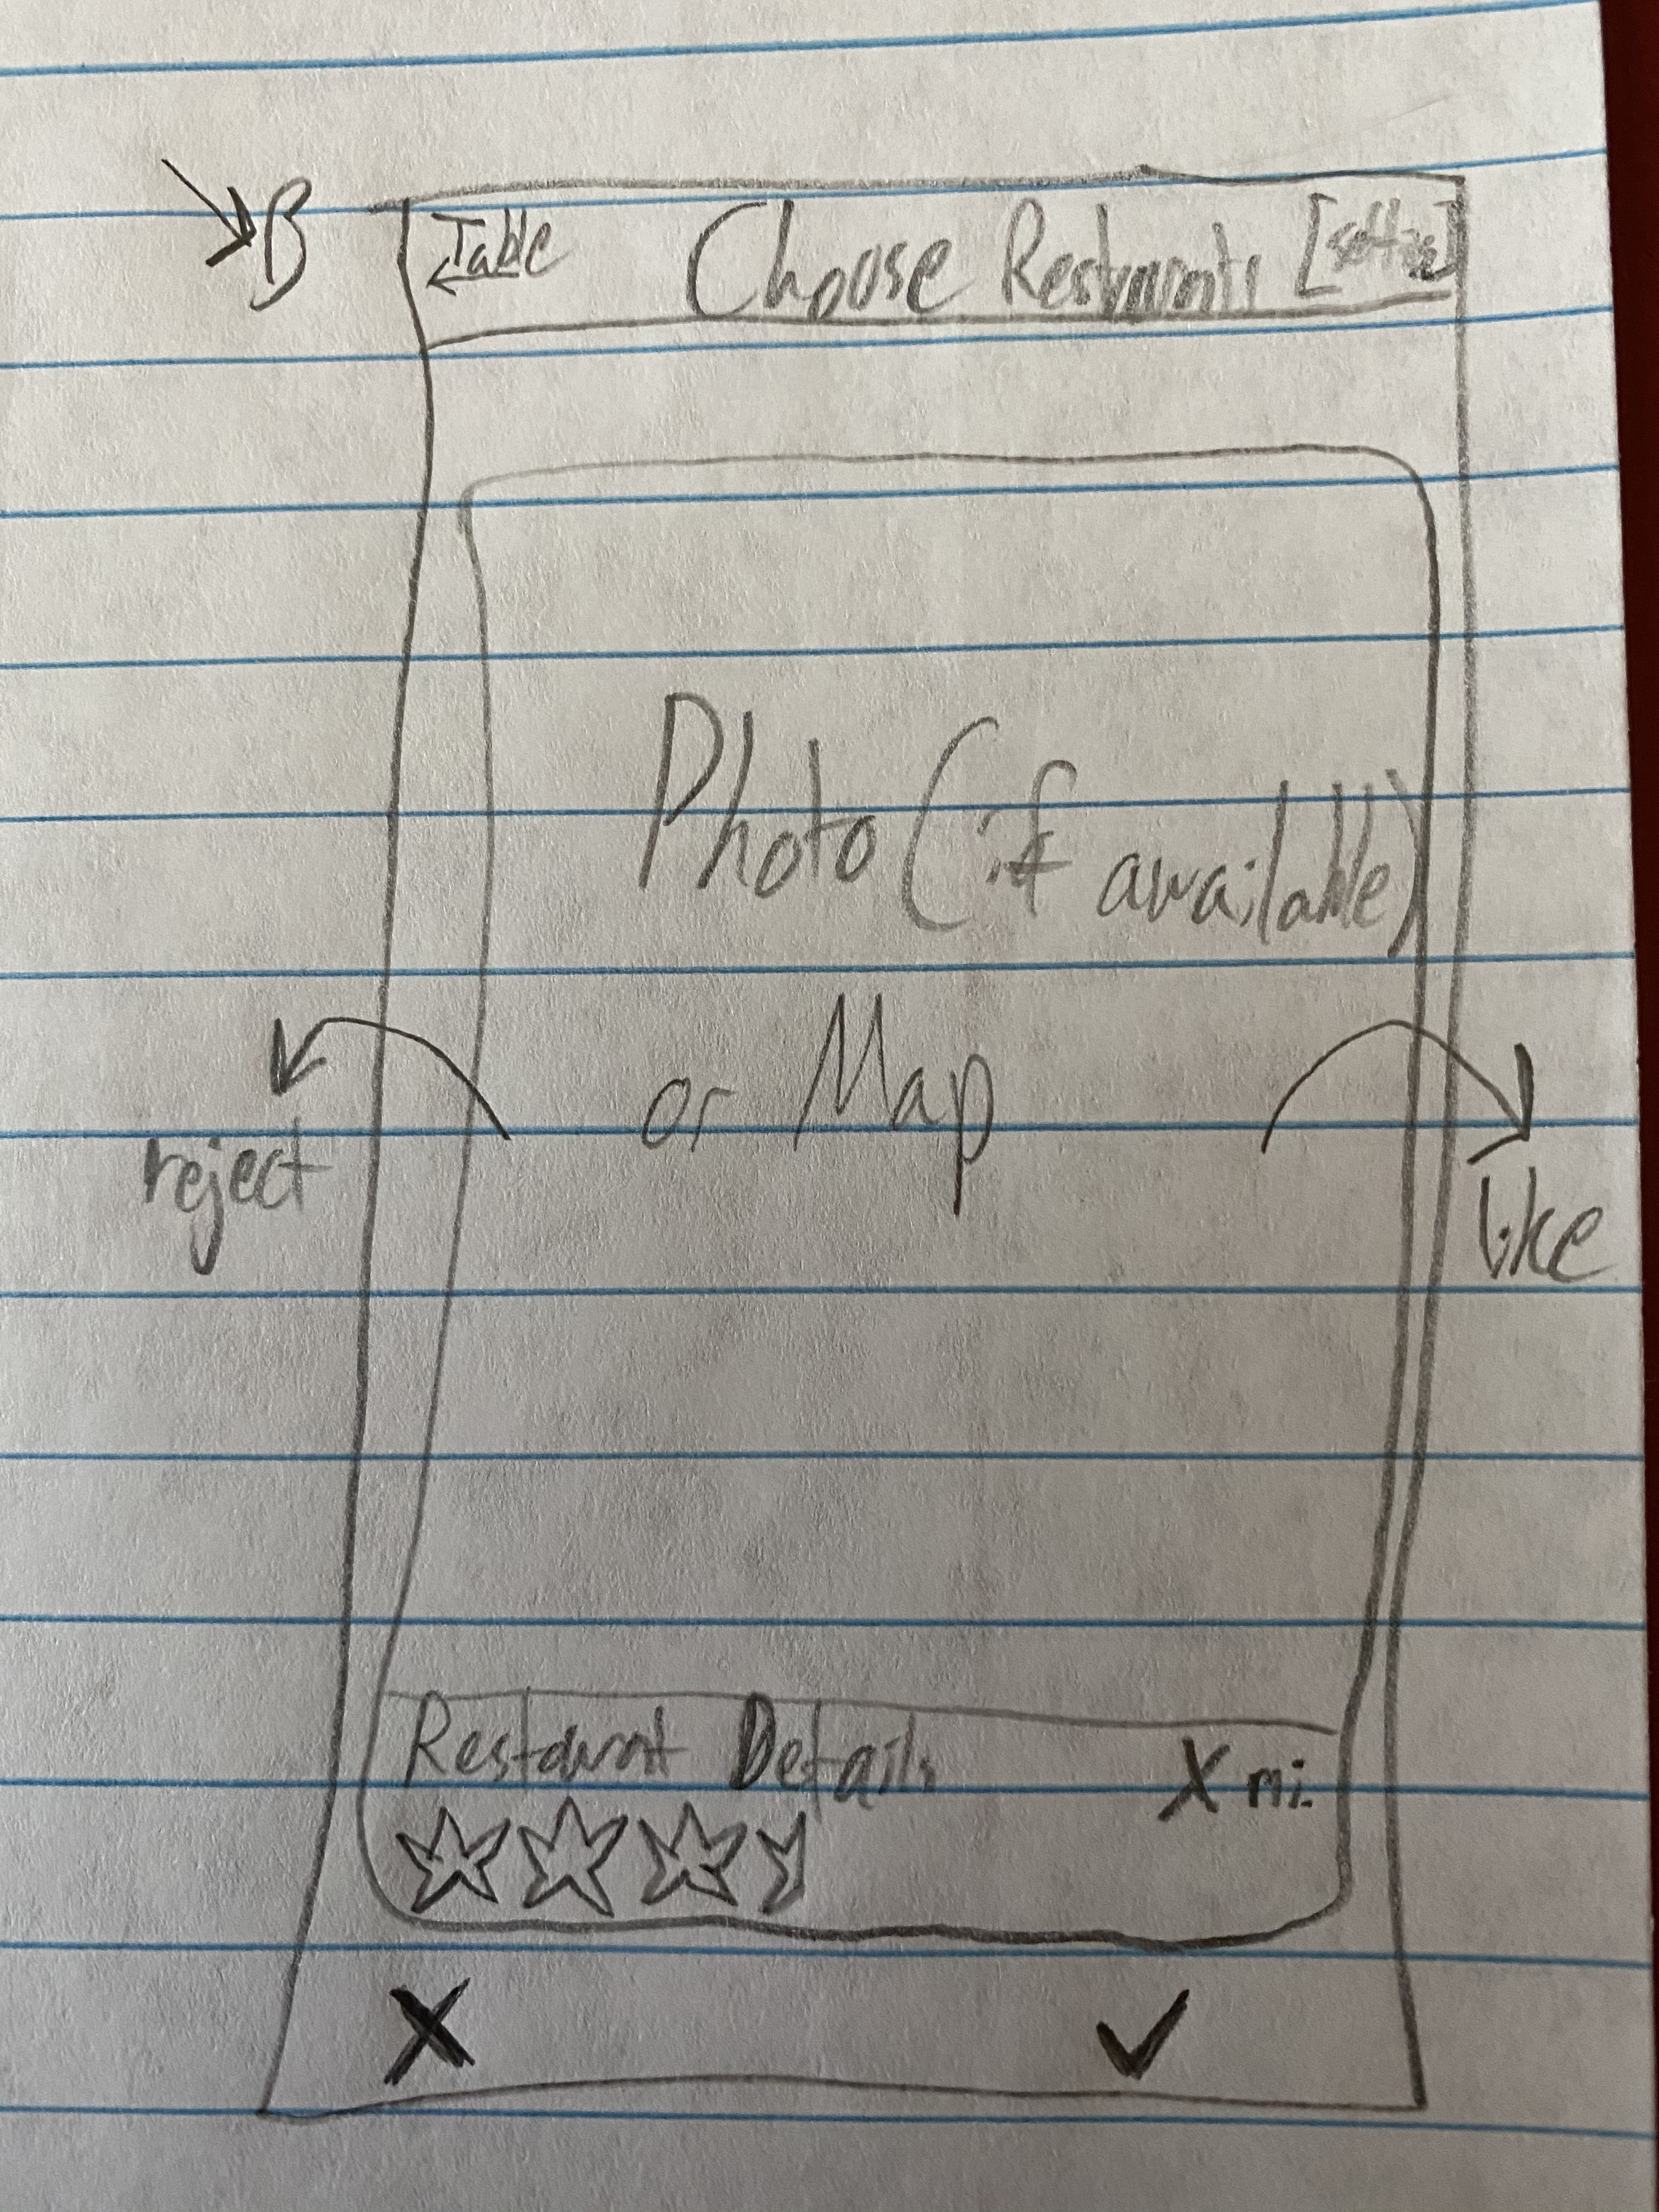 B
Table Choose Restraunts [setting]
Photo (if available)
or Map
reject
like
Restaraunt Details
X mi.